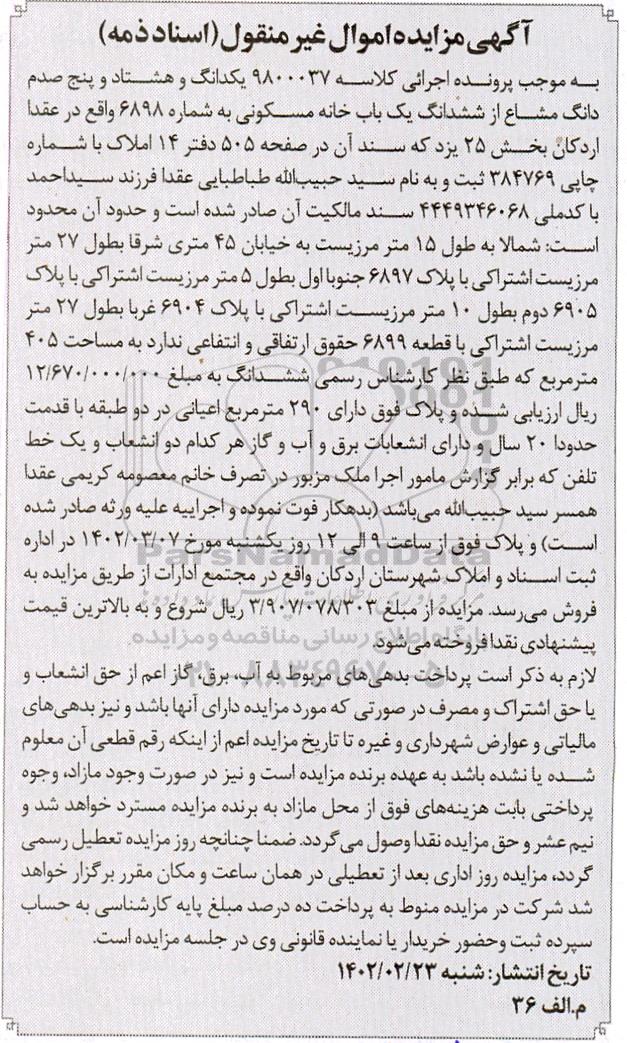 آگهی مزایده اموال غیر منقول (اسناد ذمه)
به موجب پرونده اجرائی کلاسه ۹۸۰۰۰۳۷ یکدانگ و هشتاد و پنج صدم
دانگ مشاع از ششدانگ یک باب خانه مسکونی به شماره ۶۸۹۸ واقع در عقدا
اردکان بخش ۲۵ یزد که سند آن در صفحه ۵۰۵ دفتر ۱۴ املاک با شماره
چاپی ۳۸۴۷۶۹ ثبت و به نام سید حبیب‌الله طباطبایی عقدا فرزند سیداحمد
با کدملی ۴۴۴۹۳۴۶۰۶۸ سند مالکیت آن صادر شده است و حدود آن محدود
است: شمالا به طول ۱۵ متر مرزیست به خیابان ۴۵ متری شرقا بطول ۲۷ متر
مرزیست اشتراکی با پلاک ۶۸۹۷ جنوبا اول بطول ۵ متر مرزیست اشتراکی با پلاک
۶۹۰۵ دوم بطول ۱۰ متر مرزیست اشتراکی با پلاک ۶۹۰۴ غربا بطول ۲۷ متر
مرزیست اشتراکی با قطعه ۶۸۹۹ حقوق ارتفاقی و انتفاعی ندارد به مساحت ۴۰۵
مترمربع که طبق نظر کارشناس رسمی ششدانگ به مبلغ ۱۲/۶۷۰/۰۰۰/۰۰۰
ریال ارزیابی شده و پلاک فوق دارای ۲۹۰ مترمربع اعیانی در دو طبقه با قدمت
حدودا ۲۰ سال و دارای انشعابات برق و آب و گاز هر کدام دو انشعاب و یک خط
تلفن که برابر گزارش مامور اجرا ملک مزبور در تصرف خانم معصومه کریمی عقدا
همسر سید حبیب‌الله می‌باشد (بدهکار فوت نموده و اجراییه علیه ورثه صادر شده
است) و پلاک فوق از ساعت ۹ الی ۱۲ روز یکشنبه مورخ ۱۴۰۲/۰۳/۰۷ در اداره
ParsNamadData
ثبت اسناد و املاک شهرستان اردکان واقع در مجتمع ادارات از طریق مزایده به
فروش می‌رسد. مزایده از مبلغ ۳/۹۰۷/۰۷۸/۳۰۳ ریال شروع و به بالاترین قیمت
پیشنهادی نقدا فروخته می‌شود.
پایگاه اطلاع رسانی مناقصه و مزایده
لازم به ذکر است پرداخت بدهی‌های مربوط به آب، برق، گاز اعم از حق انشعاب و
۰۲۱-۸۸۳۴۹۶۷۰-۵
یا حق اشتراک و مصرف در صورتی که مورد مزایده دارای آنها باشد و نیز بدهی‌های
مالیاتی و عوارض شهرداری و غیره تا تاریخ مزایده اعم از اینکه رقم قطعی آن معلوم
شده یا نشده باشد به عهده برنده مزایده است و نیز در صورت وجود مازاد، وجوه
پرداختی بابت هزینه‌های فوق از محل مازاد به برنده مزایده مسترد خواهد شد و
نیم عشر و حق مزایده نقدا وصول می‌گردد. ضمنا چنانچه روز مزایده تعطیل رسمی
گردد، مزایده روز اداری بعد از تعطیلی در همان ساعت و مکان مقرر برگزار خواهد
شد شرکت در مزایده منوط به پرداخت ده درصد مبلغ پایه کارشناسی به حساب
سپرده ثبت وحضور خریدار یا نماینده قانونی وی در جلسه مزایده است.
تاریخ انتشار: شنبه ۱۴۰۲/۰۲/۲۳
م.الف ۳۶